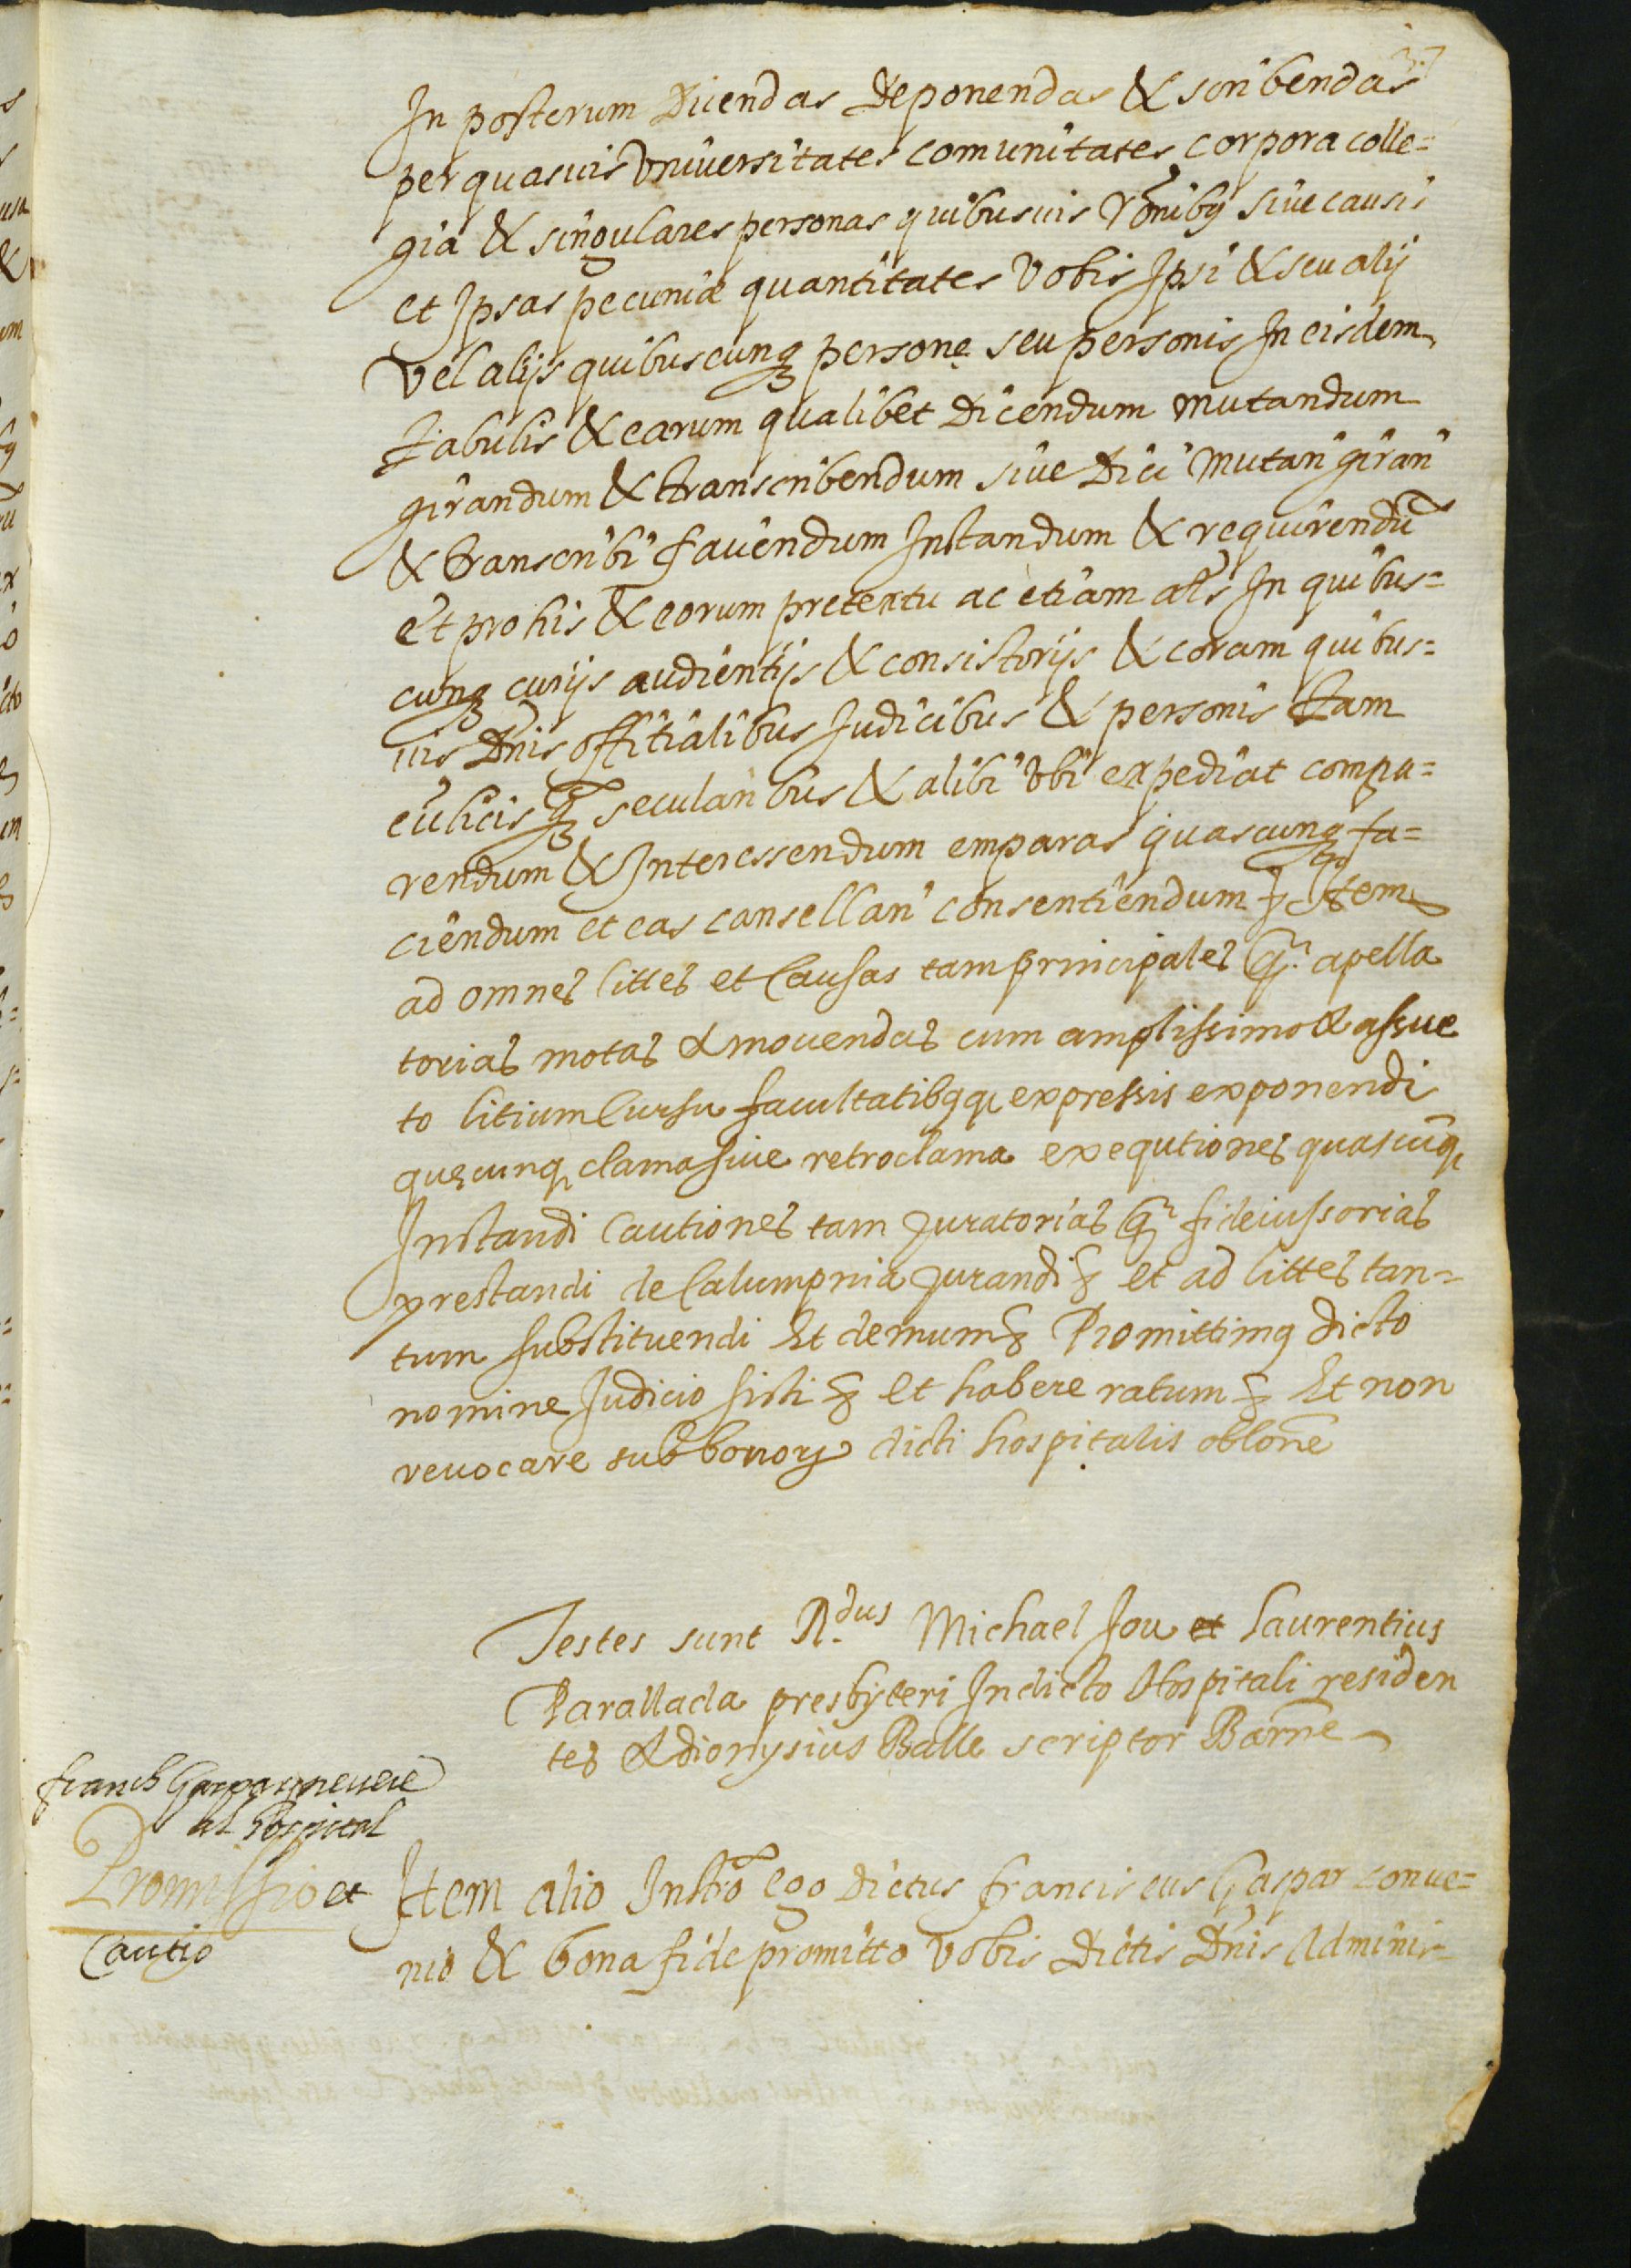 37
In posterum Dicendas Deponendas & scribendas
per quasuis Vniuersitates comunitates corpora colle=
gia & singulares personas quibusuis rõnibq siue causis
et Ipsas pecuniæ quantitates Vobis Ipsi & seu alij
Vel alijs quibuscunq personę seu personis In eisdem
tabulis & earum qualibet Dicendum mutandum
girandum & transcribendum siue Dici mutari girari
& transcribi fauendum Instandum & requirendũ
et pro his & eorum pretextu ac etiam als In quibus=
cunq curijs audientijs & consistorijs & coram quibus=
uis Dnis offitialibus Iudicibus & personis tam
ecclicis q̃ secularibus & alibi Vbi expediat compa=
rendum & Interessendum emparas quascunq fa=
ciendum et eas cansellari consentiendum & Item
ad omnes littes et Causas tam principales q̃ apella
torias motas & mouendas cum amplissimo & assue
to litium Cursu facultatibq q expressis exponendi
quęcunq clama siue retroclama exequtiones quascũq
Instandi Cautiones tam Juratorias q̃ fideiussorias
prestandi de Calumpnia Jurandi & et ad littes tan=
tum substituendi Et demum & Promittimq dicto
nomine Judicio sisti & et habere ratum & Et non
reuocare sub bonorz dicti hospitalis oblone
Testes sunt R.dus Michael Jou et Laurentius
Parallada presbyteri In dicto Hospitali residen
tes & dionysius Balle scriptor Barne
franch Gaspar
al hospital
Promissio et
Cautio
Item alio Instro ego dictus franciscus Gaspar conue=
nio & bona fide promitto Vobis Dictis Dnis Adminis=